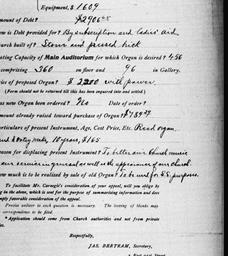 Equipment, $1609
mount of Debt? $2906.25
w is Debt provided for? By subscription and Ladies' Aid
hurch built of? Stone and pressed brick
ating Capacity of Main Auditorium for which Organ is desired? 456
comprising 360 on floor and 96 in Gallery.
rice of proposed Organ? $ with power.
(Form should not returned till this has been enquired into and settled.)
as new Organ been ordered? No Date of order?
mount already raised toward purchase of Organ?
rticulars of present Instrument, Age, Cost Price, Etc. Reed organ.
10 years, $165
eason for displacing present Instrument? To better our Church music
our services in general as well as the appearance of our Church.
ow much is to be realized by sale of old Organ? To be used for S.S. purposes.
To facilitate Mr. Carnegie's consideration of your appeal, will you oblig
ing in the above, which is sent for the purpose of summarizing information and doe
imply favorable consideration of the appeal.
Precise answer to each question is necessary. The leaving of blanks may
correspondence to be filed.
Application should come from Church authorities and not from private
Respectfully,
JAS. BERTRAM, Secretary,